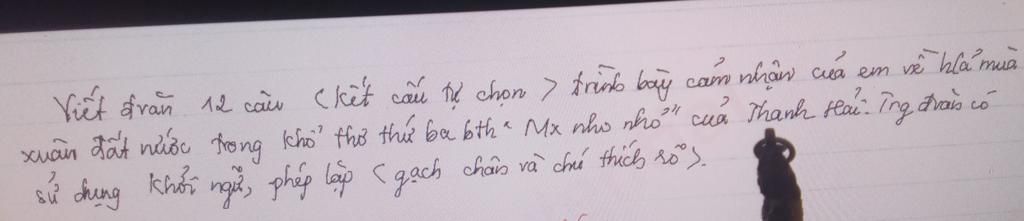 Viết đvăn 12 câu (kết cấu tự chọn) trình bày cảm nhận của em về h/ả mùa
xuân đất nước trong khổ thơ thứ ba bth "Mx nho nhỏ" của Thanh Hải. Trg đvăn có
sử dụng khởi ngữ, phép lặp (gạch chân và chú thích rõ).